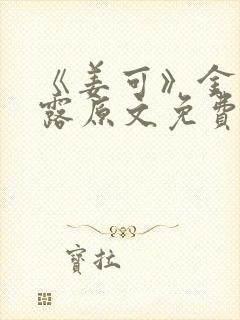 《姜可》金
露原文免費
寶拉